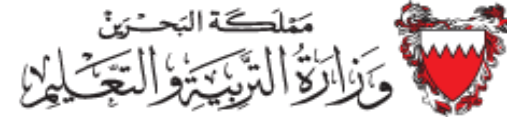 مَمْلَكَة البَحْرَيْنْ
وَزَارَةُ التَّرْبِيَةِ وَ التَّعْلِيْمِ